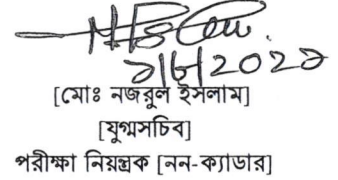 [মোঃ নজরুল ইসলাম]
[যুগ্মসচিব]
পরীক্ষা নিয়ন্ত্রক [নন-ক্যাডার]